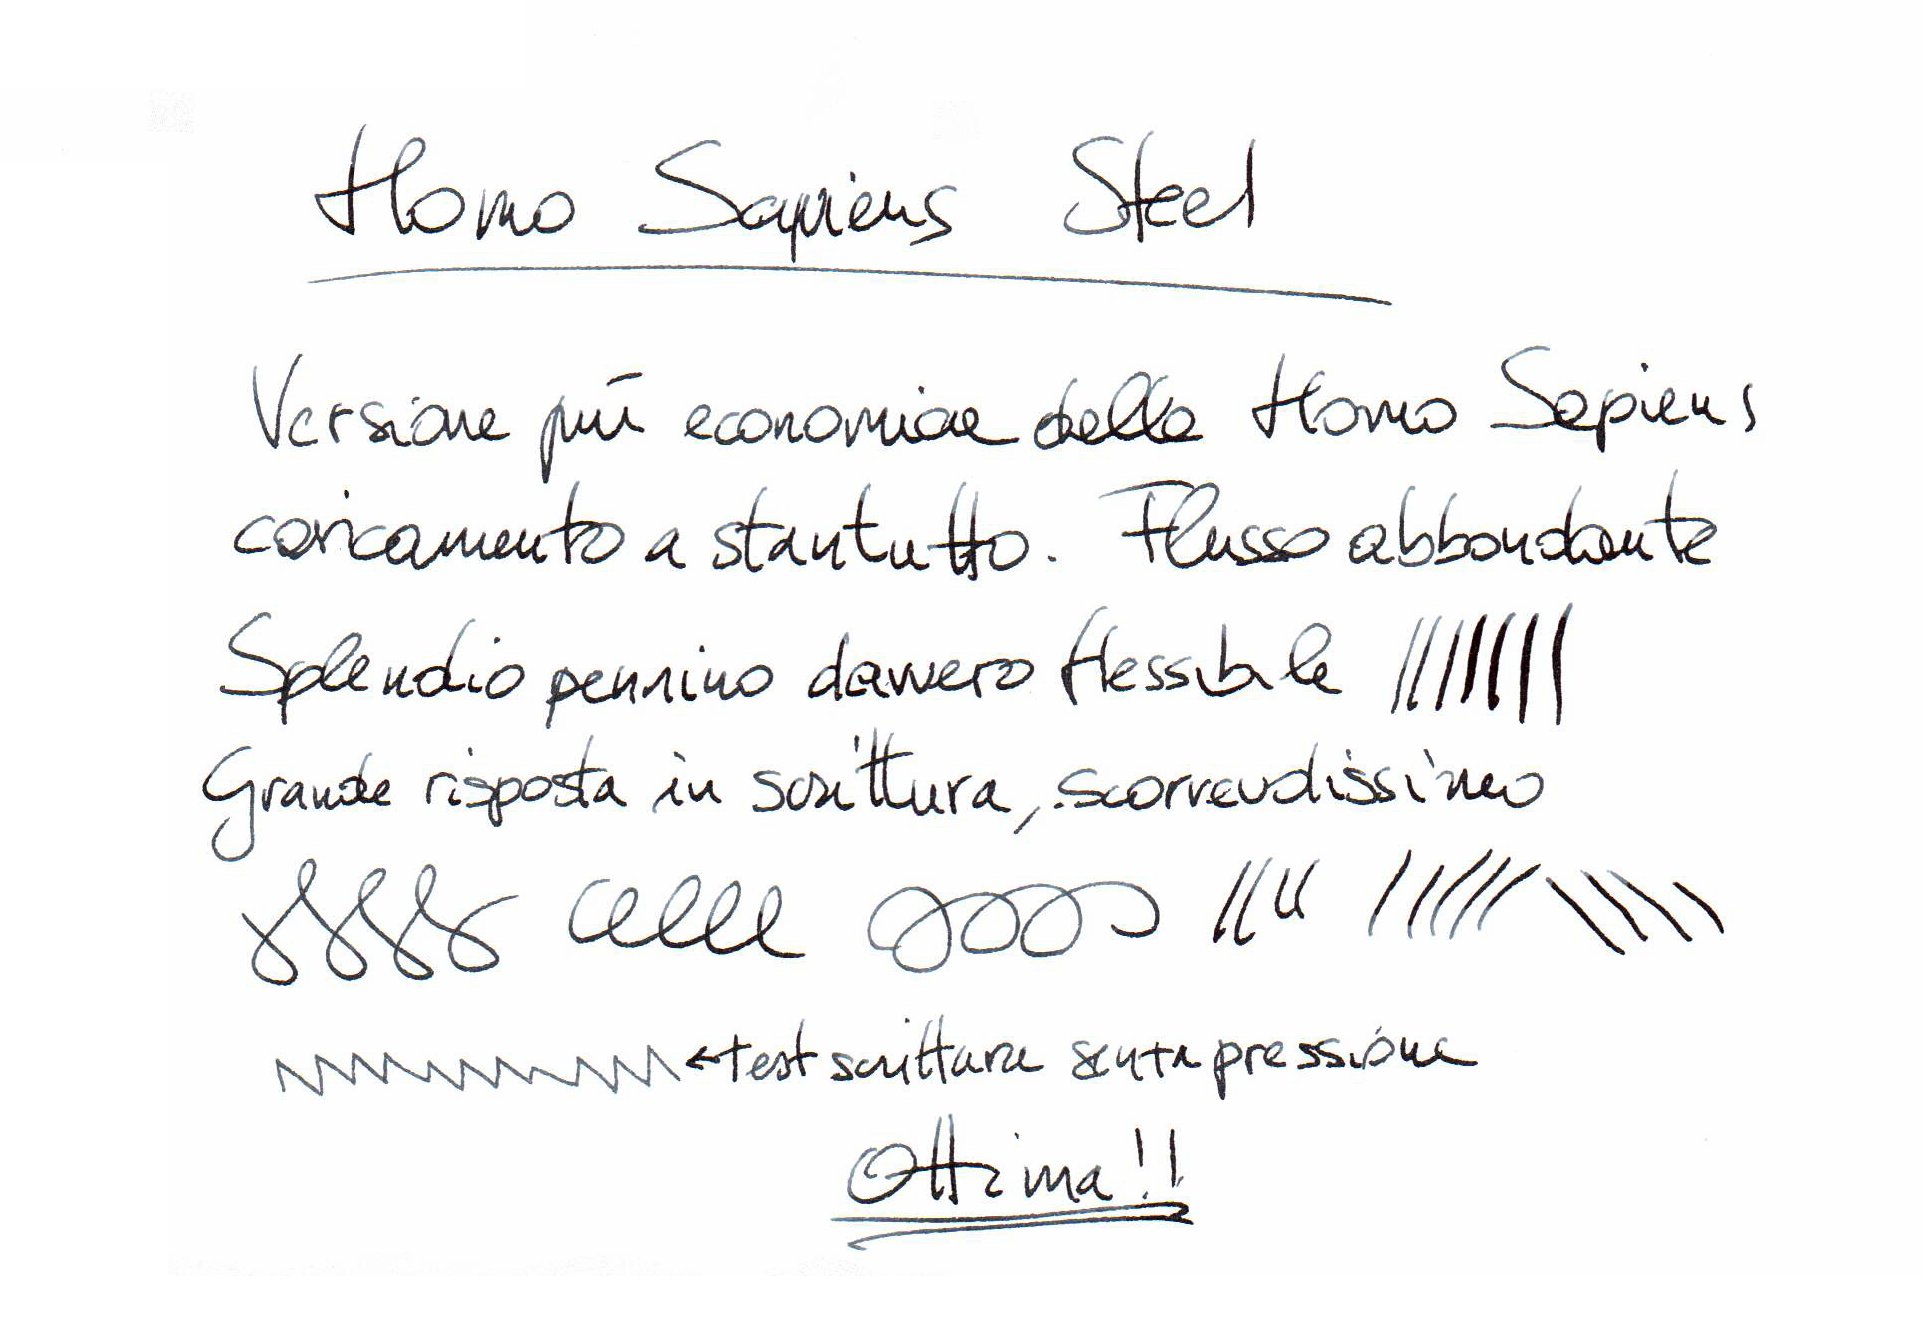 Homo Sapiens Steel
Versione più economica della Homo Sapiens
caricamento a stantuffo. Flusso abbondante
Splendio pennino davvero flessibile
Grande risposta in scrittura, scorrevolissimo
←test scrittura senza pressione
Ottima!!